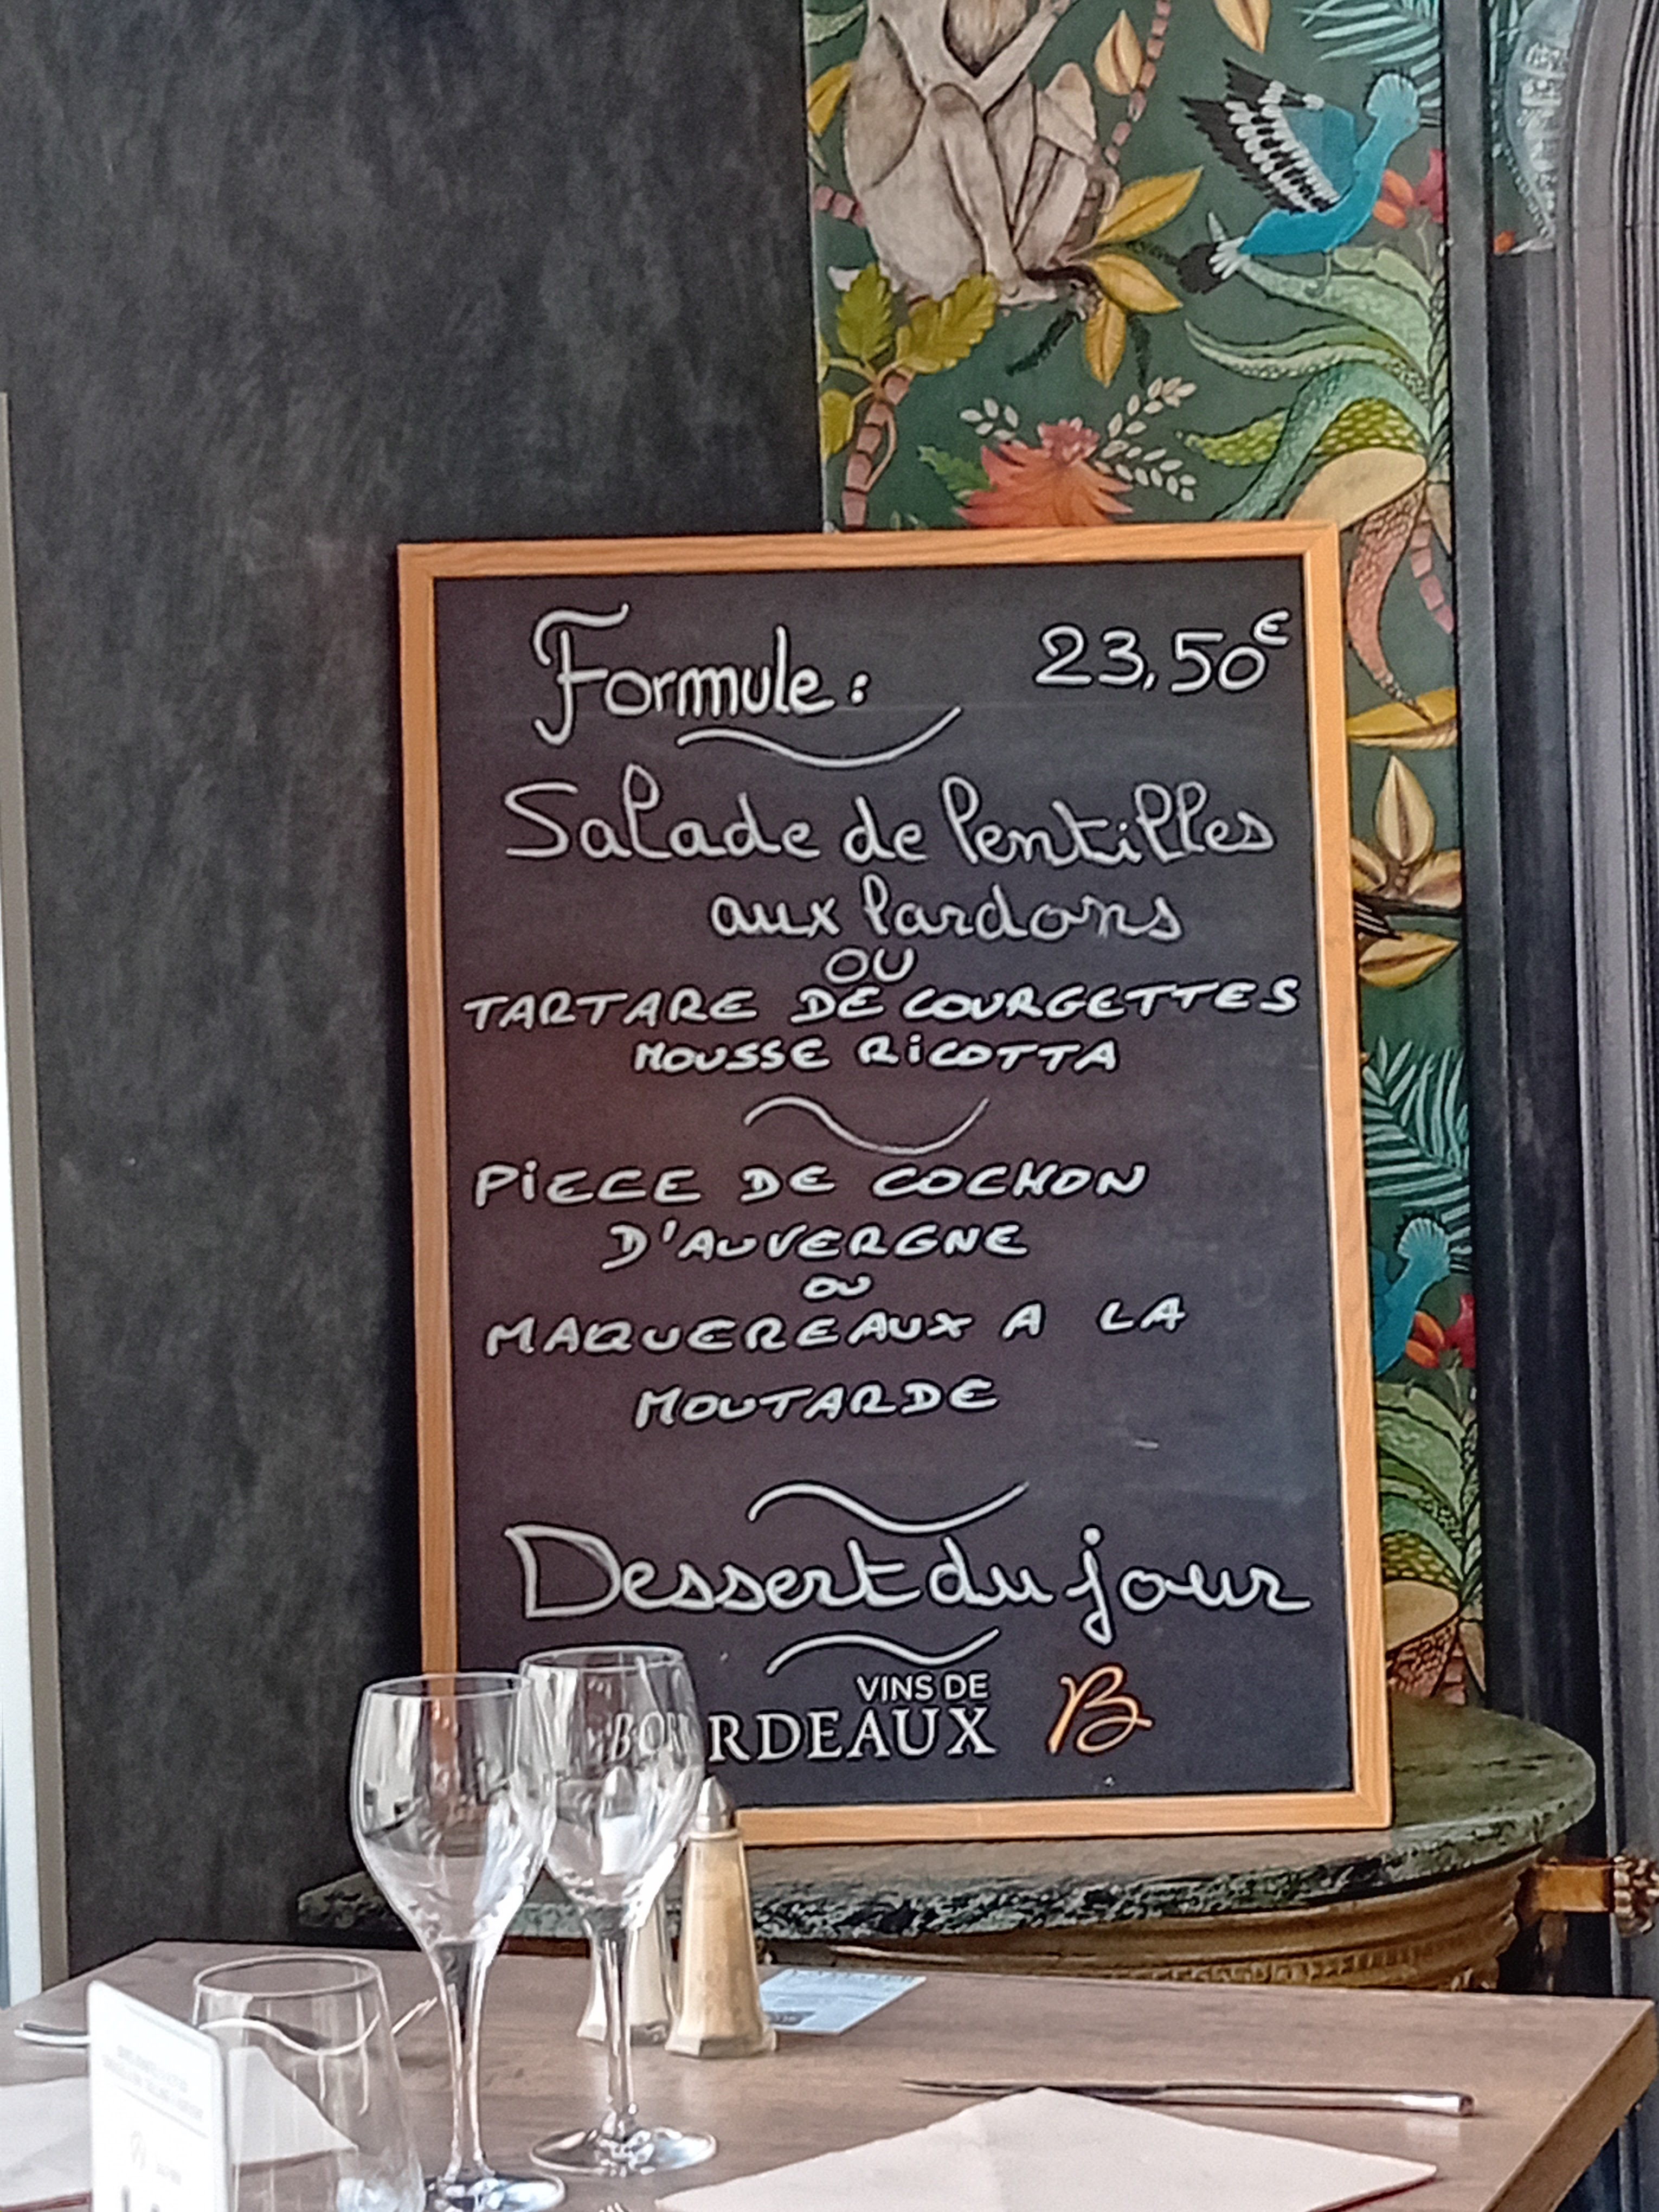 Formule : 23,50€
Salade de lentilles
aux lardons
OU
TARTARE DE COURGETTES
MOUSSE RICOTTA
PIECE DE COCHON
D'AUVERGNE
OU
MAQUEREAUX A LA
MOUTARDE
Dessert du jour
VINS DE
BORDEAUX B